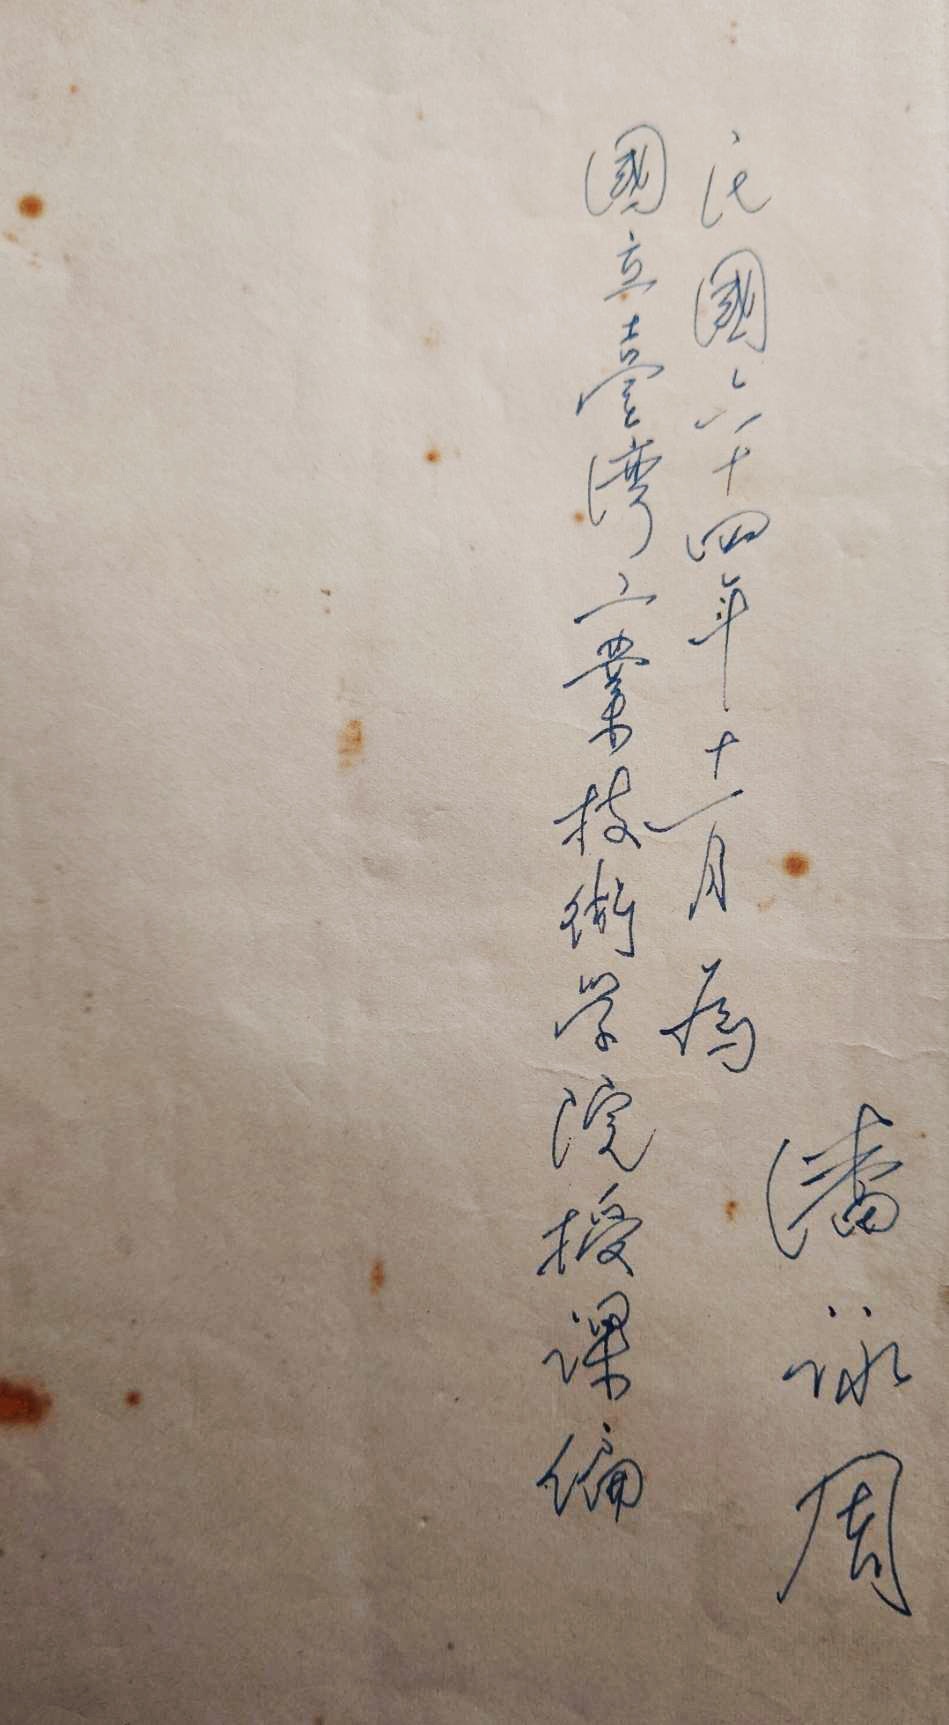 潘詠周
民國六十四年十一月為
國立臺灣工業技術学院授課編